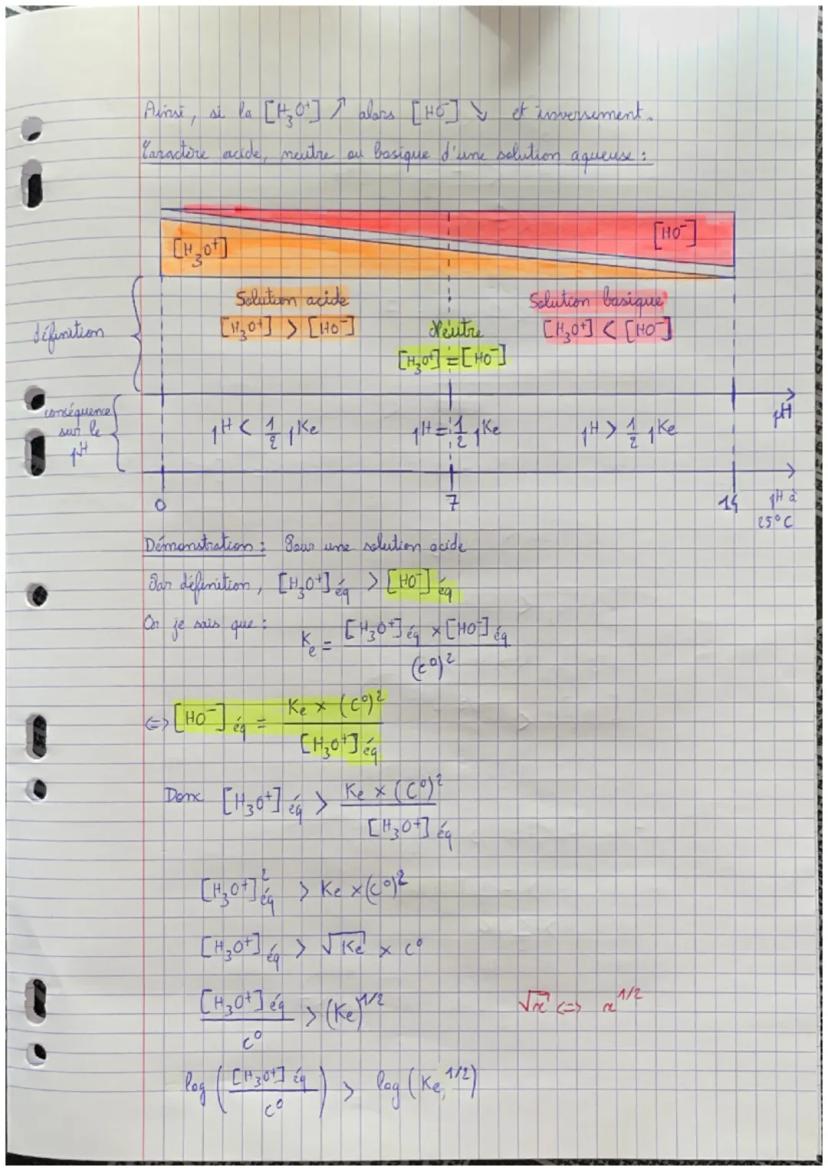 Ainsi, si la [H₃O⁺] ↗ alors [HO⁻] ↘ et inversement.
Caractère acide, neutre ou basique d'une solution aqueuse :
[HO⁻]
[H₃O⁺]
Solution acide
Solution basique
[H₃O⁺] > [HO⁻]
Neutre
[H₃O⁺] < [HO⁻]
définition
[H₃O⁺] = [HO⁻]
conséquence
sur le
pH
pH < 1/2 pKe
pH = 1/2 pKe
pH > 1/2 pKe
pH
0
7
14
pH à
25°C
Démonstration : Pour une solution acide
Par définition, [H₃O⁺]éq > [HO⁻]éq
Or je sais que : Ke = ([H₃O⁺]éq × [HO⁻]éq) / (c⁰)²
⇔ [HO⁻]éq = (Ke × (C⁰)²) / [H₃O⁺]éq
Donc [H₃O⁺]éq > (Ke × (C⁰)²) / [H₃O⁺]éq
[H₃O⁺]²éq > Ke × (c⁰)²
[H₃O⁺]éq > √Ke × c⁰
[H₃O⁺]éq / c⁰ > (Ke)^1/2
√x ⇔ x^1/2
log([H₃O⁺]éq / c⁰) > log(Ke^1/2)